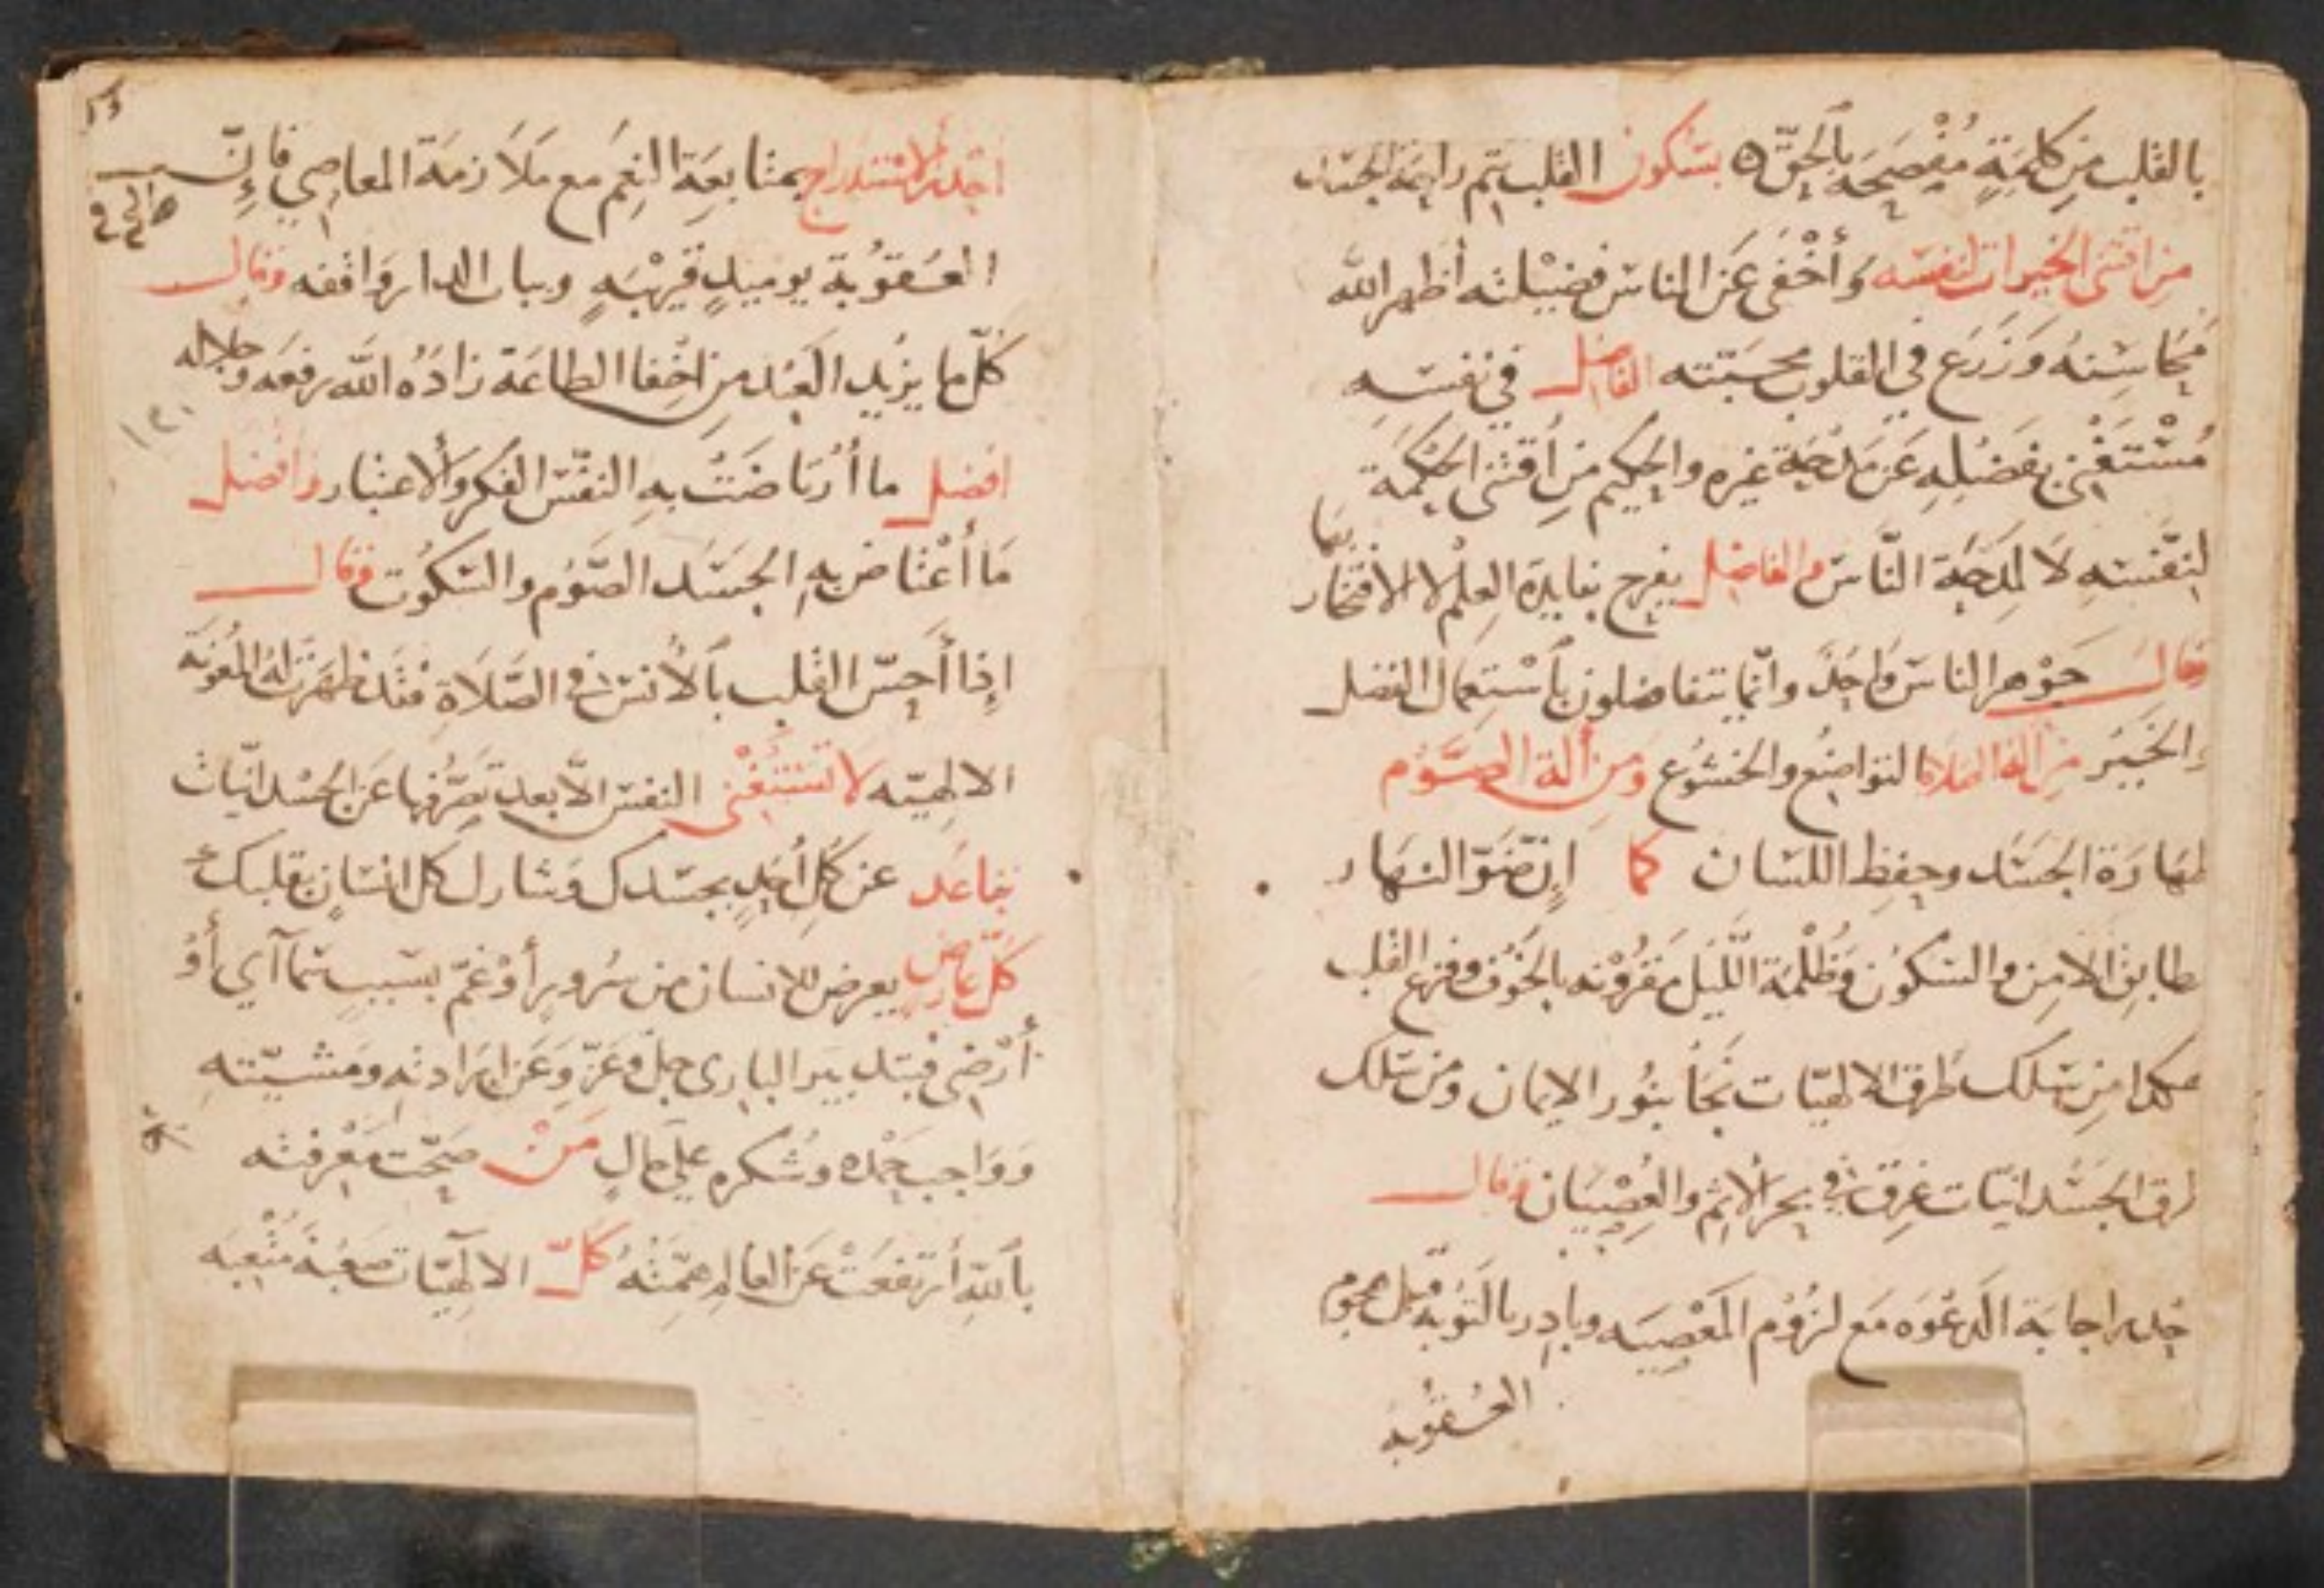 بالقلب من كلمةٍ مُفْصَحه بالحقّ ه بسكون القلب يتم راحة الجسد
من اقتنى الخيرات لنفسه وَأخْفى عَن الناس فضيْلته أظهر الله
مَحَاسِنهُ وَزَرَع في القلوب محبّته الفاضل في نفسه
مُسْتَغْنى بفضله عَن مَدْحَة غيره والحكيم من اقتنى الحكمة
لنفسهِ لا لمدحَة النَّاس والفاضل يفرح بفايدة العِلْم لا الافتخار بها
وقال جَوْهر الناس وَاحِدً وانّما يتفاضلون بأسْتعمال الفضل
والخَيْر من ألة الصلاة التواضع والخشوع ومن ألة الصَّوْم
طهارَة الجسَد وحفظ اللسان كما إن ضوّ النهار
طابق الامن والسكون وظُلْمة اللّيل مَقرُوْنه بالخَوْف وفزع القلب
هكدا من سلك طُرق الالهيّات نَجَا بنُور الايمان ومن سلك
طرق الجسْدانيّات غرق في بحر الأثم والعصْيَان وقال
اجابَة الدعْوَه مَع لزُوْم المَعْصِيَه وبادِر بالتوْبة قبل هجوم
العُقُوبة
احدر الاستدراج بمتابعَة النِعَم مع مَلَازمَة المعاصي فَإِنّ
العُقوُبة يوميدٍ قريْبَهٍ وبباب الدار وَاقفه وقال
كلّ ما يزيد العَبْد من اخْفا الطاعَة زادَهُ الله رفعَه وجلاله
افضل ما أرتاضَتْ به النفْس الفكر وَالاعتبار وافضل
مَا أعْتاض به الجسَد الصَّوْم والسكوُت وقال
إذا أحسّ القلب بالأنس في الصَّلَاة فقَد ظهَرت له المعُونَة
الالهيّه لا تسْتغْنى النفس الّا بعد تصَرُّفها عَن الجسْدانيّات
تباعَد عن كل أحدٍ بجسَدك وَشارك كل انسَانٍ بقلبك
كلّ عارض يعرض للانسان من سُرورٍ أوْ غمّ بسَببٍ سَمآاي أوْ
أرْضي فبتدبير البارى جلّ وَعَزّ وَعَن ارَادته ومَشيّته
وَوَاجب حمْده وشُكره علَى كل حالٍ مَنْ صَحّت مَعْرفته
بأللّهِ أرْتفعَتْ عَن العَالم همّتهُ كلّ الالهيّات صَعبَة مُتْعبَه